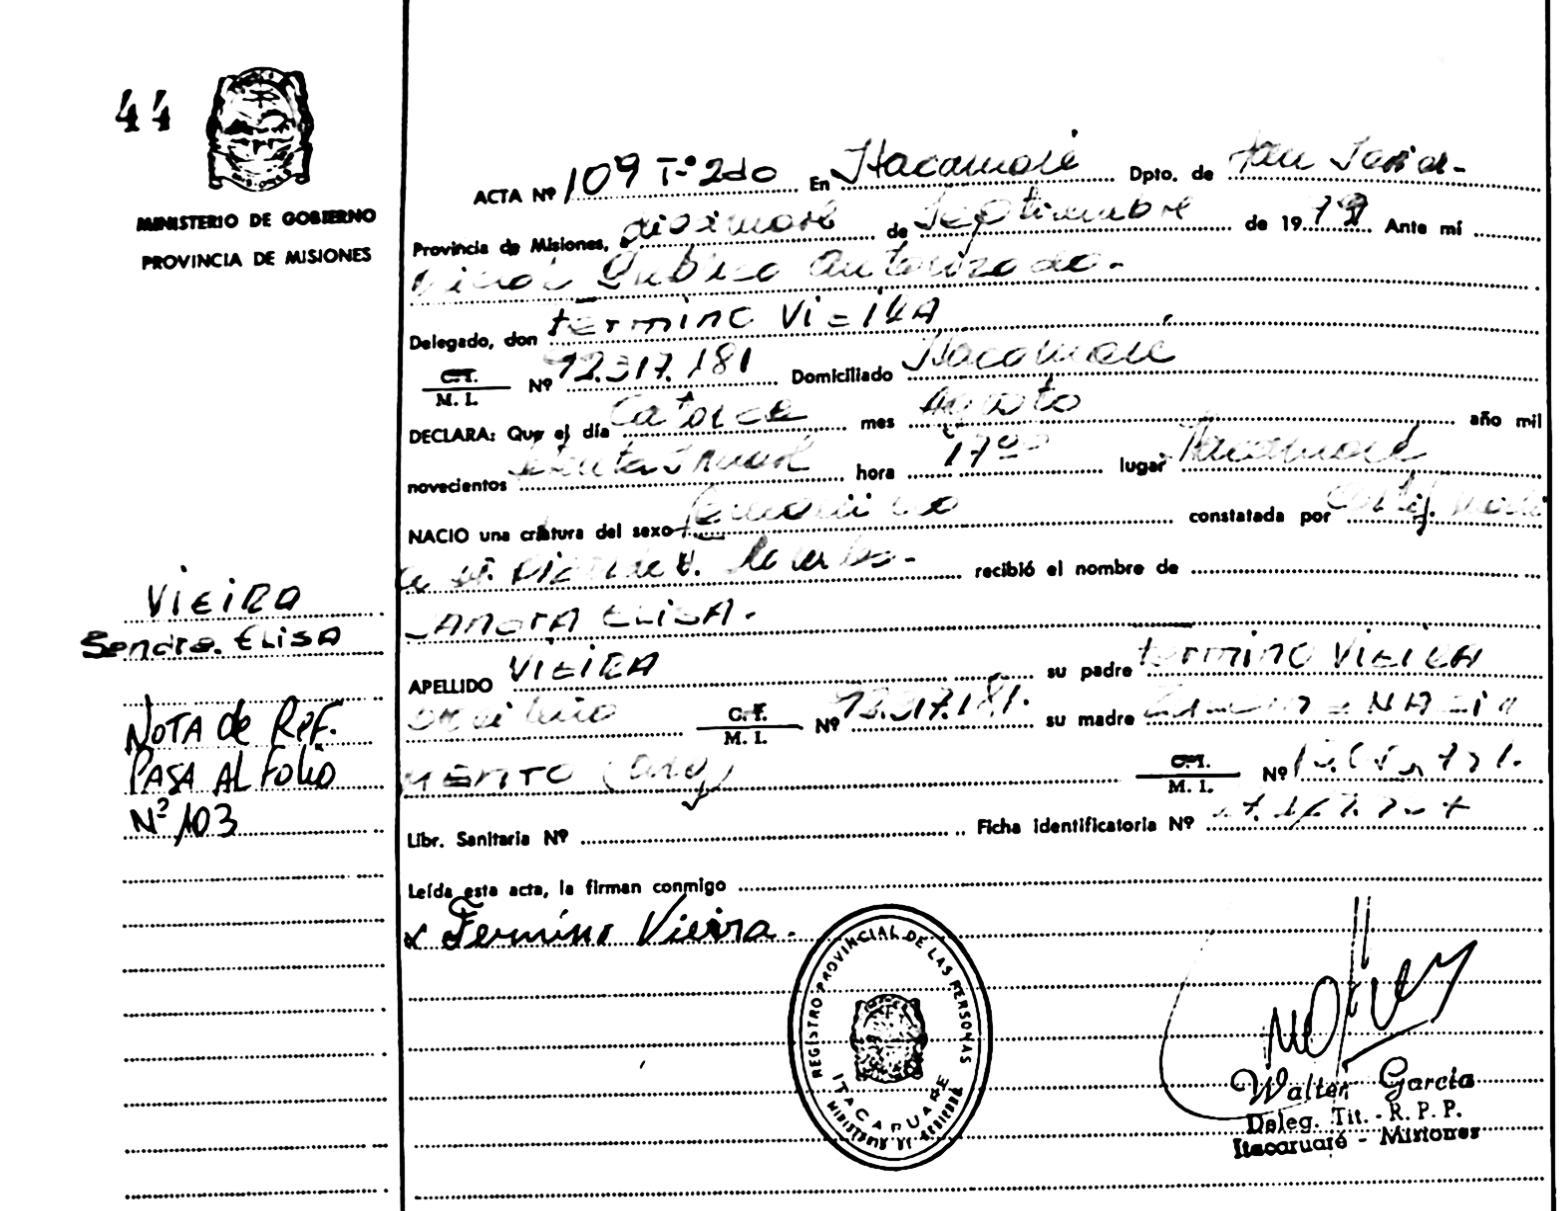 44
MINISTERIO DE GOBIERNO
PROVINCIA DE MISIONES
ACTA Nº 109 Tº 2do En Itacaruaré Dpto. de San Javier.-
Provincia de Misiones, a diecinueve de Septiembre de 1979 Ante mí
Oficial Publico Autorizado.-
Delegado, don Fermino VIEIRA
C.I. M. I. Nº 92.317.181 Domiciliado Itacaruaré
DECLARA: Que el día Catorce mes Agosto año mil
novecientos setenta y nueve hora 17 00 lugar Itacaruaré
NACIO una criatura del sexo femenino constatada por
recibió el nombre de
SANDRA ELISA.
APELLIDO VIEIRA su padre Fermino VIEIRA
C.I. M. I. Nº 92.317.181. su madre
(arg) C.I. M. I. Nº
Libr. Sanitaria Nº Ficha identificatoria Nº
Leída esta acta, la firman conmigo
x Fermino Vieira.
VIEIRA
Sandra. ELISA
NOTA de REF.
PASA AL FOLIO
Nº 103
REGISTRO PROVINCIAL DE LAS PERSONAS
ITACARUARE
MINISTERIO DE GOBIERNO
Walter Garcia
Deleg. Tit. - R. P. P.
Itacaruaré - Misiones